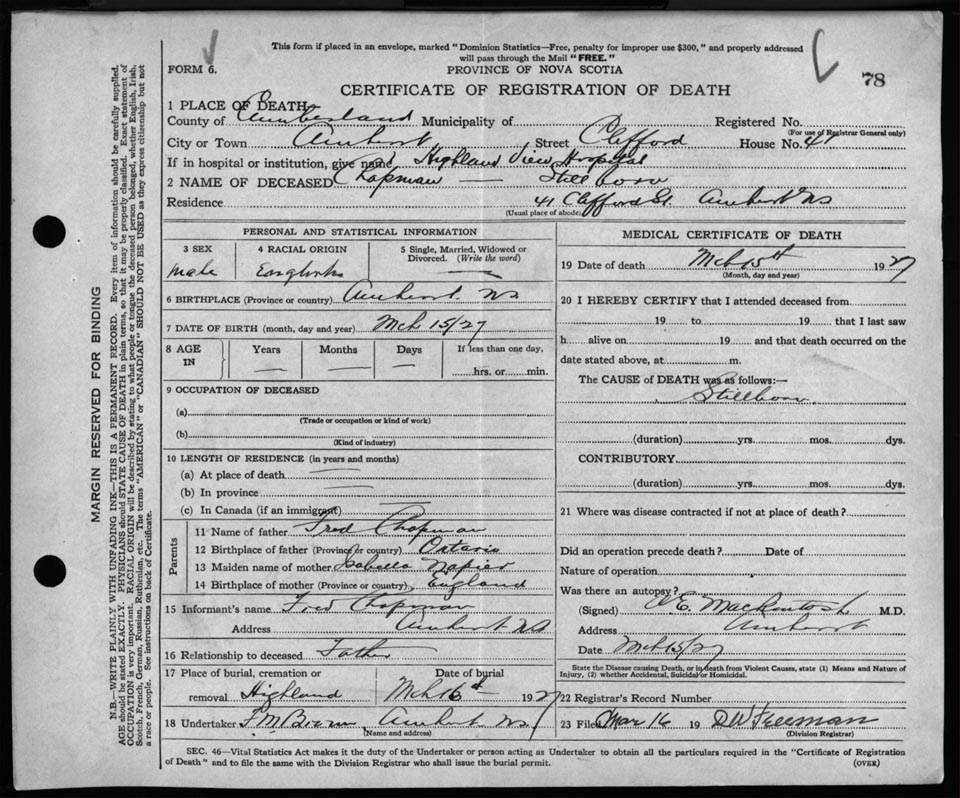 This form if placed in an envelope, marked "Dominion Statistics—Free, penalty for improper use $300," and properly addressed
will pass through the Mail "FREE."
FORM 6.
PROVINCE OF NOVA SCOTIA
78
CERTIFICATE OF REGISTRATION OF DEATH
1 PLACE OF DEATH
County of Cumberland Municipality of Registered No.
(For use of Registrar General only)
City or Town Amherst, Street Clifford House No. 41
If in hospital or institution, give name Highland View Hospital
2 NAME OF DECEASED Chapman — Stillborn
Residence 41 Clifford St. Amherst NS
(Usual place of abode)
PERSONAL AND STATISTICAL INFORMATION
3 SEX 4 RACIAL ORIGIN 5 Single, Married, Widowed or
Divorced. (Write the word)
Male English —
6 BIRTHPLACE (Province or country) Amherst. NS.
7 DATE OF BIRTH (month, day and year) Mch 15/27
8 AGE IN Years Months Days If less than one day,
— — — hrs. or min.
9 OCCUPATION OF DECEASED
(a)
(Trade or occupation or kind of work)
(b)
(Kind of industry)
10 LENGTH OF RESIDENCE (in years and months)
(a) At place of death
(b) In province
(c) In Canada (if an immigrant)
Parents
11 Name of father Fred Chapman
12 Birthplace of father (Province or country) Ontario
13 Maiden name of mother Isabella Napier
14 Birthplace of mother (Province or country) England
15 Informant's name Fred Chapman
Address Amherst NS
16 Relationship to deceased Father
17 Place of burial, cremation or Date of burial
removal Highland Mch 16th 1927
18 Undertaker F M Brown, Amherst NS
(Name and address)
MEDICAL CERTIFICATE OF DEATH
19 Date of death Mch 15th 1927
(Month, day and year)
20 I HEREBY CERTIFY that I attended deceased from
19 to 19 that I last saw
h alive on 19 and that death occurred on the
date stated above, at m.
The CAUSE of DEATH was as follows:—
Stillborn
(duration) yrs. mos. dys.
CONTRIBUTORY
(duration) yrs. mos. dys.
21 Where was disease contracted if not at place of death?
Did an operation precede death? Date of
Nature of operation
Was there an autopsy?
(Signed) E. Mackintosh M.D.
Address Amherst
Date Mch 15/27
State the Disease causing Death, or in death from Violent Causes, state (1) Means and Nature of
Injury, (2) whether Accidental, Suicidal or Homicidal.
22 Registrar's Record Number
23 Filed Mar 16 19 D W Freeman
(Division Registrar)
SEC. 46—Vital Statistics Act makes it the duty of the Undertaker or person acting as Undertaker to obtain all the particulars required in the "Certificate of Registration
of Death" and to file the same with the Division Registrar who shall issue the burial permit.
(OVER)
MARGIN RESERVED FOR BINDING
N.B.—WRITE PLAINLY WITH UNFADING INK—THIS IS A PERMANENT RECORD. Every item of information should be carefully supplied.
AGE should be stated EXACTLY. PHYSICIANS should STATE CAUSE OF DEATH in plain terms, so that it may be properly classified. Exact statement of
OCCUPATION is very important. RACIAL ORIGIN will be described by stating to what people or tongue the deceased person belonged, whether English, Irish,
Scotch, French, German, Russian, Ruthenian, etc. The terms "AMERICAN" or "CANADIAN" SHOULD NOT BE USED as they express citizenship but not
a race or people. See instructions on back of Certificate.